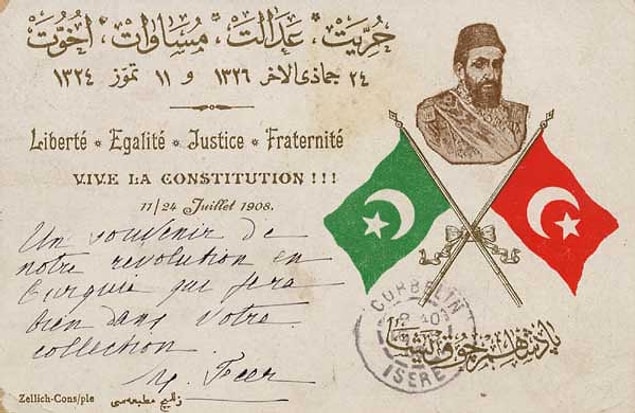 حُرِّيَتْ، عَدَالَتْ، مُسَاوَاتْ، اُخُوَّتْ
٢٤ جماذى الاخر ١٣٢٦ و ١١ تموز ١٣٢٤
Liberté * Egalité * Justice * Fraternité
VIVE LA CONSTITUTION !!!
11/24 Juillet 1908.
Un souvenir de
notre revolution en
Turquie qui fera
bien dans votre
collection.
Feer
CORBELIN
ISERE
پادشاهم چوق يشا
Zellich-Cons/ple
زلليچ مطبعه سى